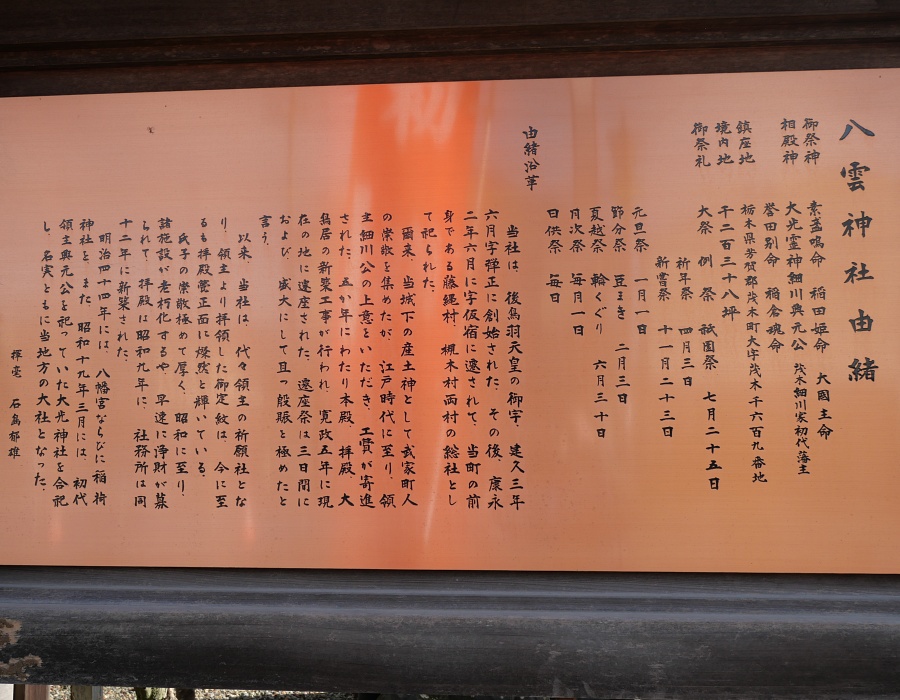 八雲神社由緒
御祭神 素盞鳴命 稲田姫命 大國主命
相殿神 大光霊神細川興元公 茂木細川家初代藩主
誉田別命 稲倉魂命
鎮座地 栃木県芳賀郡茂木町大字茂木千六百九番地
境内地 千二百三十八坪
御祭礼 大祭 例祭 祇園祭 七月二十五日
祈年祭 四月三日
新嘗祭 十一月二十三日
元旦祭 一月一日
節分祭 豆まき 二月三日
夏越祭 輪くぐり 六月三十日
月次祭 毎月一日
日供祭 毎日
由緒沿革
当社は、後鳥羽天皇の御宇、建久三年
六月字弾正に創始された。その後、康永
二年六月に字仮宿に遷されて、当町の前
身である藤縄村、槻木村両村の総社とし
て祀られた。
爾来、当城下の産土神として武家町人
の崇敬を集めたが、江戸時代に至り、領
主細川公の上意をいただき、工費が寄進
された。五か年にわたり本殿、拝殿、大
鳥居の新築工事が行われ、寛政五年に現
在の地に遷座された。遷座祭は三日間に
および、盛大にして且つ殷賑と極めたと
言う。
以来、当社は、代々領主の祈願社とな
り、領主より拝領した御定紋は、今に至
るも拝殿営正面に燦然と輝いている。
氏子の崇敬極めて厚く、昭和に至り、
諸施設が老朽化するや、早速に浄財が募
られて、拝殿は昭和九年に、社務所は同
十二年に新築された。
明治四十四年には、八幡宮ならびに稲荷
神社と、また、昭和十九年三月には、初代
領主興元公を祀っていた大光神社を合祀
し、名実ともに当地方の大社となった。
揮毫 石島郁雄